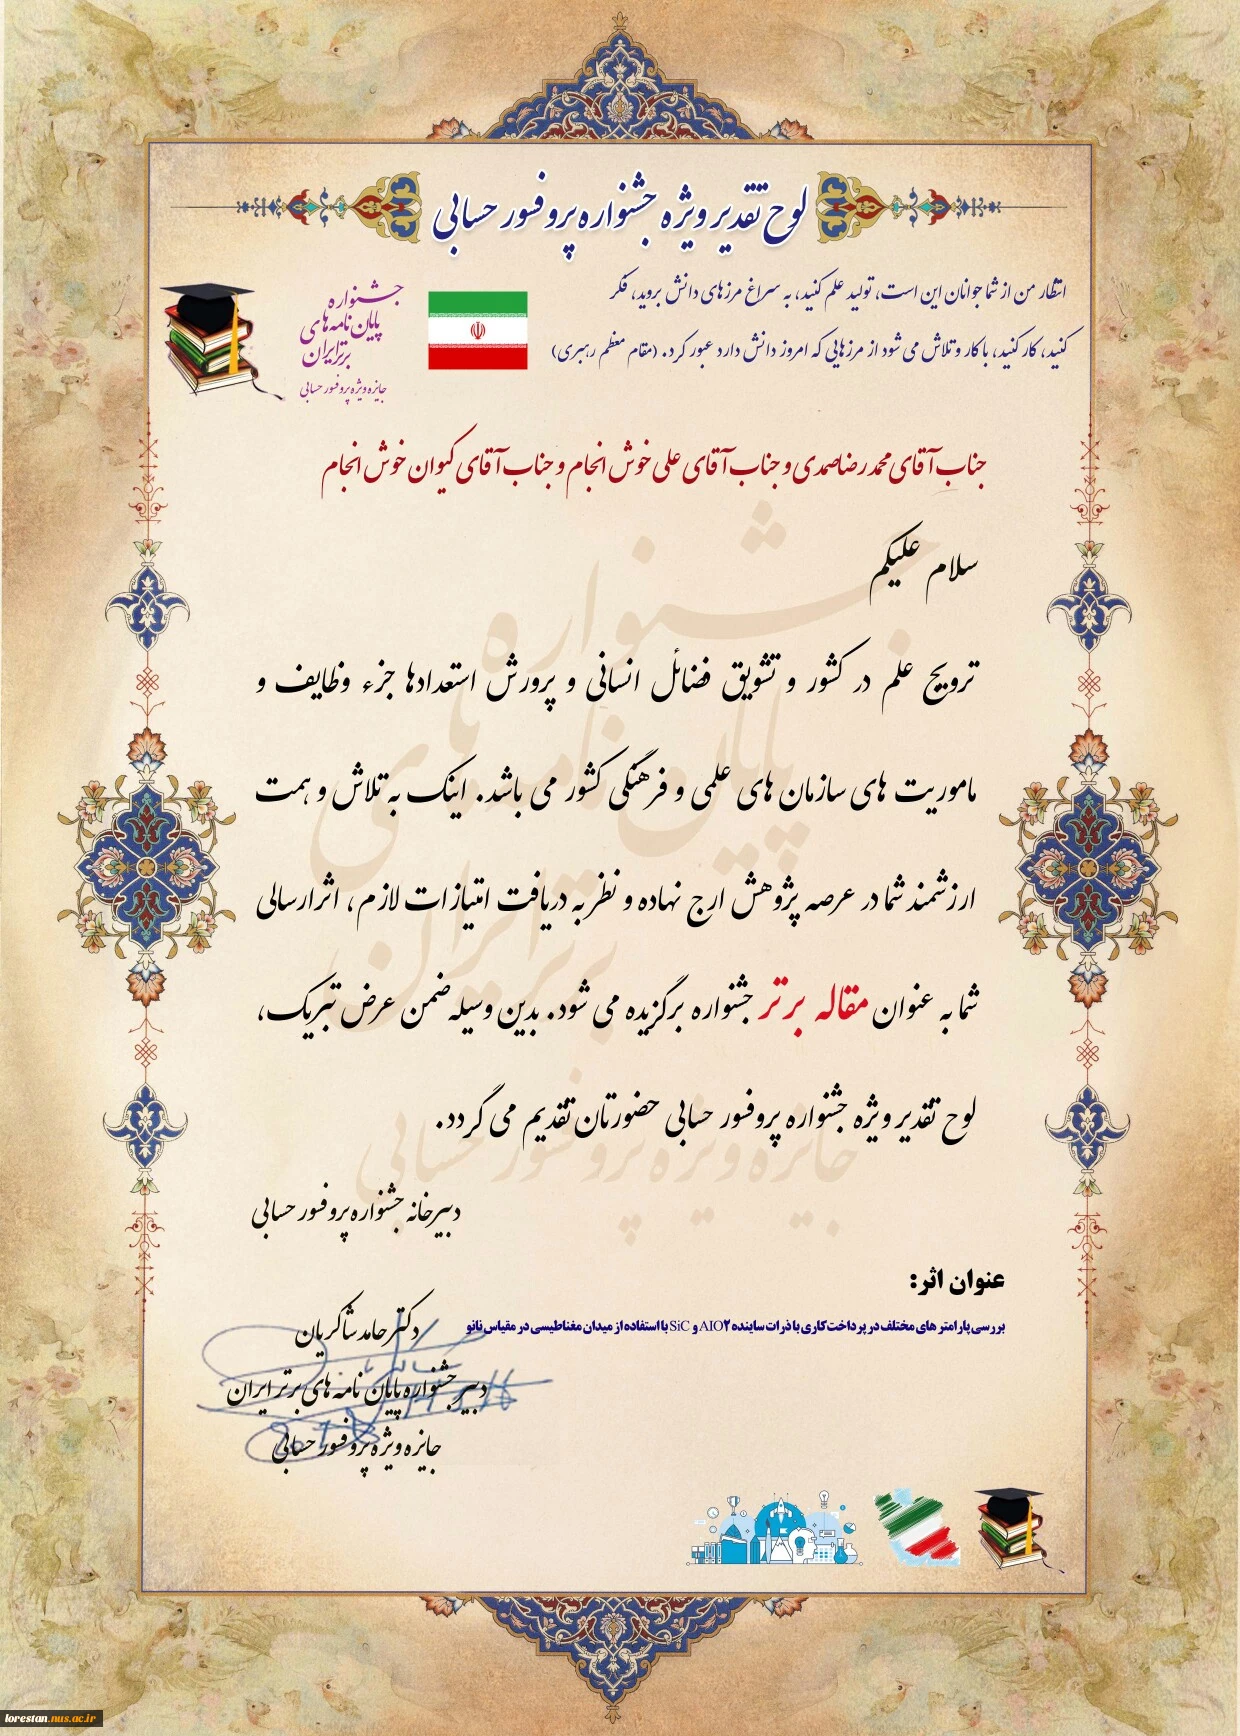 لوح تقدیر ویژه جشنواره پروفسور حسابی
انتظار من از شما جوانان این است، تولید علم کنید، به سراغ مرزهای دانش بروید، فکر
کنید، کار کنید، با کار و تلاش می شود از مرزهایی که امروز دانش دارد عبور کرد. (مقام معظم رهبری)
جشنواره
پایان نامه های
برتر ایران
جایزه ویژه پروفسور حسابی
جناب آقای محمدرضا صمدی و جناب آقای علی خوش انجام و جناب آقای کیوان خوش انجام
سلام علیکم
ترویج علم در کشور و تشویق فضائل انسانی و پرورش استعدادها جزء وظایف و
ماموریت های سازمان های علمی و فرهنگی کشور می باشد. اینک به تلاش و همت
ارزشمند شما در عرصه پژوهش ارج نهاده و نظر به دریافت امتیازات لازم، اثر ارسالی
شما به عنوان مقاله برتر جشنواره برگزیده می شود. بدین وسیله ضمن عرض تبریک،
لوح تقدیر ویژه جشنواره پروفسور حسابی حضورتان تقدیم می گردد.
جشنواره
پایان نامه های
برتر ایران
جایزه ویژه پروفسور حسابی
دبیرخانه جشنواره پروفسور حسابی
عنوان اثر:
بررسی پارامتر های مختلف در پرداخت کاری با ذرات ساینده AIO۲ و SiC با استفاده از میدان مغناطیسی در مقیاس نانو
دکتر حامد شاکریان
دبیر جشنواره پایان نامه های برتر ایران
جایزه ویژه پروفسور حسابی
lorestan.nus.ac.ir